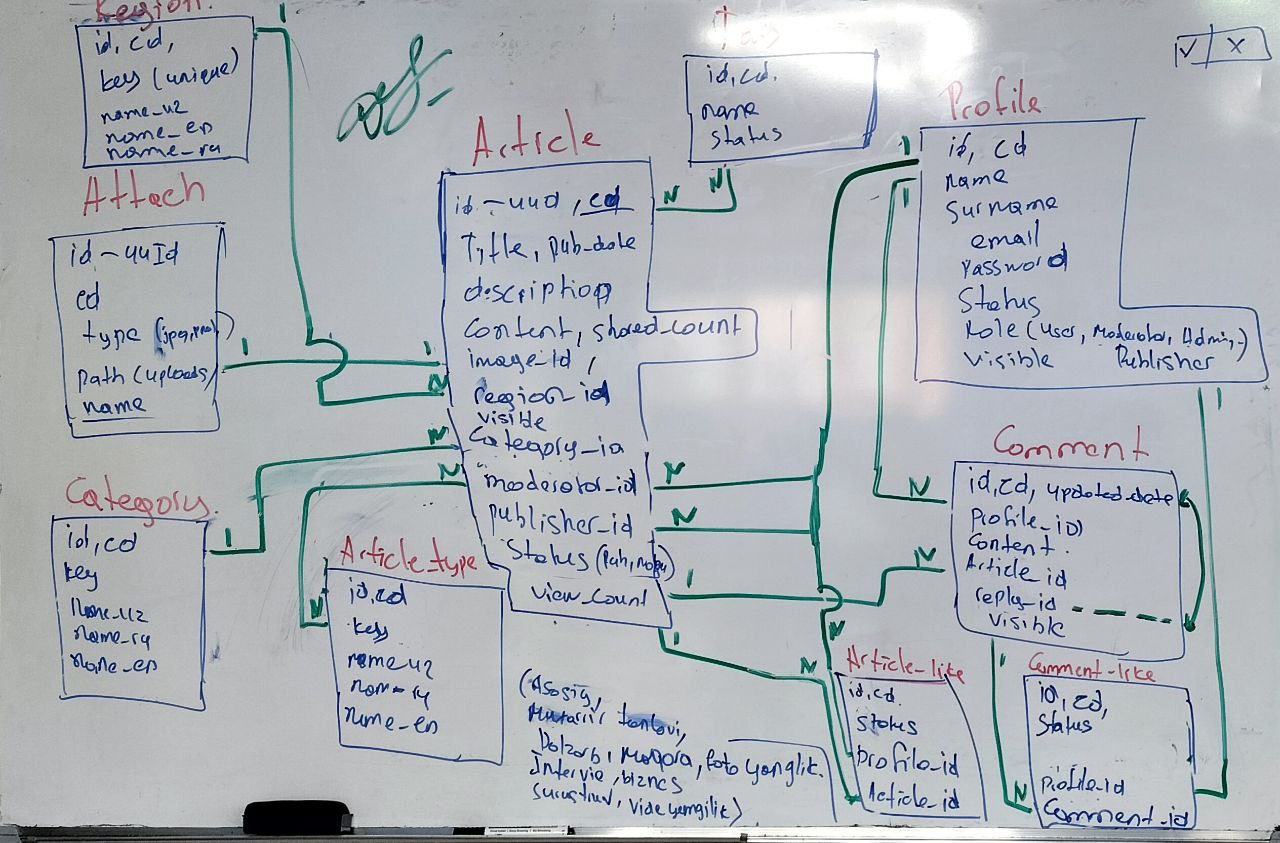 Region.
id, cd,
key (unique)
name_uz
name_en
name_ru
Attach
id - uuId
cd
type (jpeg,
path (uploads)
name
Category.
id, cd
key
Name_uz
name_ru
name_en
Article
id - uuid, cd
Title, pub_date
description
content, shared_count
image_id,
region_id
visible
Category_id
moderator_id
publisher_id
Status (Pub,
view_count
Article_type
id, cd
key
name_uz
name_ru
name_en
(Asosiy,
Muharrir tanlovi,
Dolzarb, Maqola, foto yangilik.
Intervie, biznes
surushtiruv, video yangilik)
Tag
id, cd.
name
status
V X
Profile
id, cd
name
Surname
email
Password
Status
Role (user, Moderator, Admin,-)
visible Publisher
Comment
id, cd, updated_date
Profile_id
Content.
Article_id
reply_id
visible
Article-like
id, cd.
status
profile_id
Article_id
Comment-like
id, cd,
Status
profile_id
Comment_id
1
1
1
N
N
N
1
N
N
N
N
N
1
1
N
N
1
N
1
N
N
1
1
N